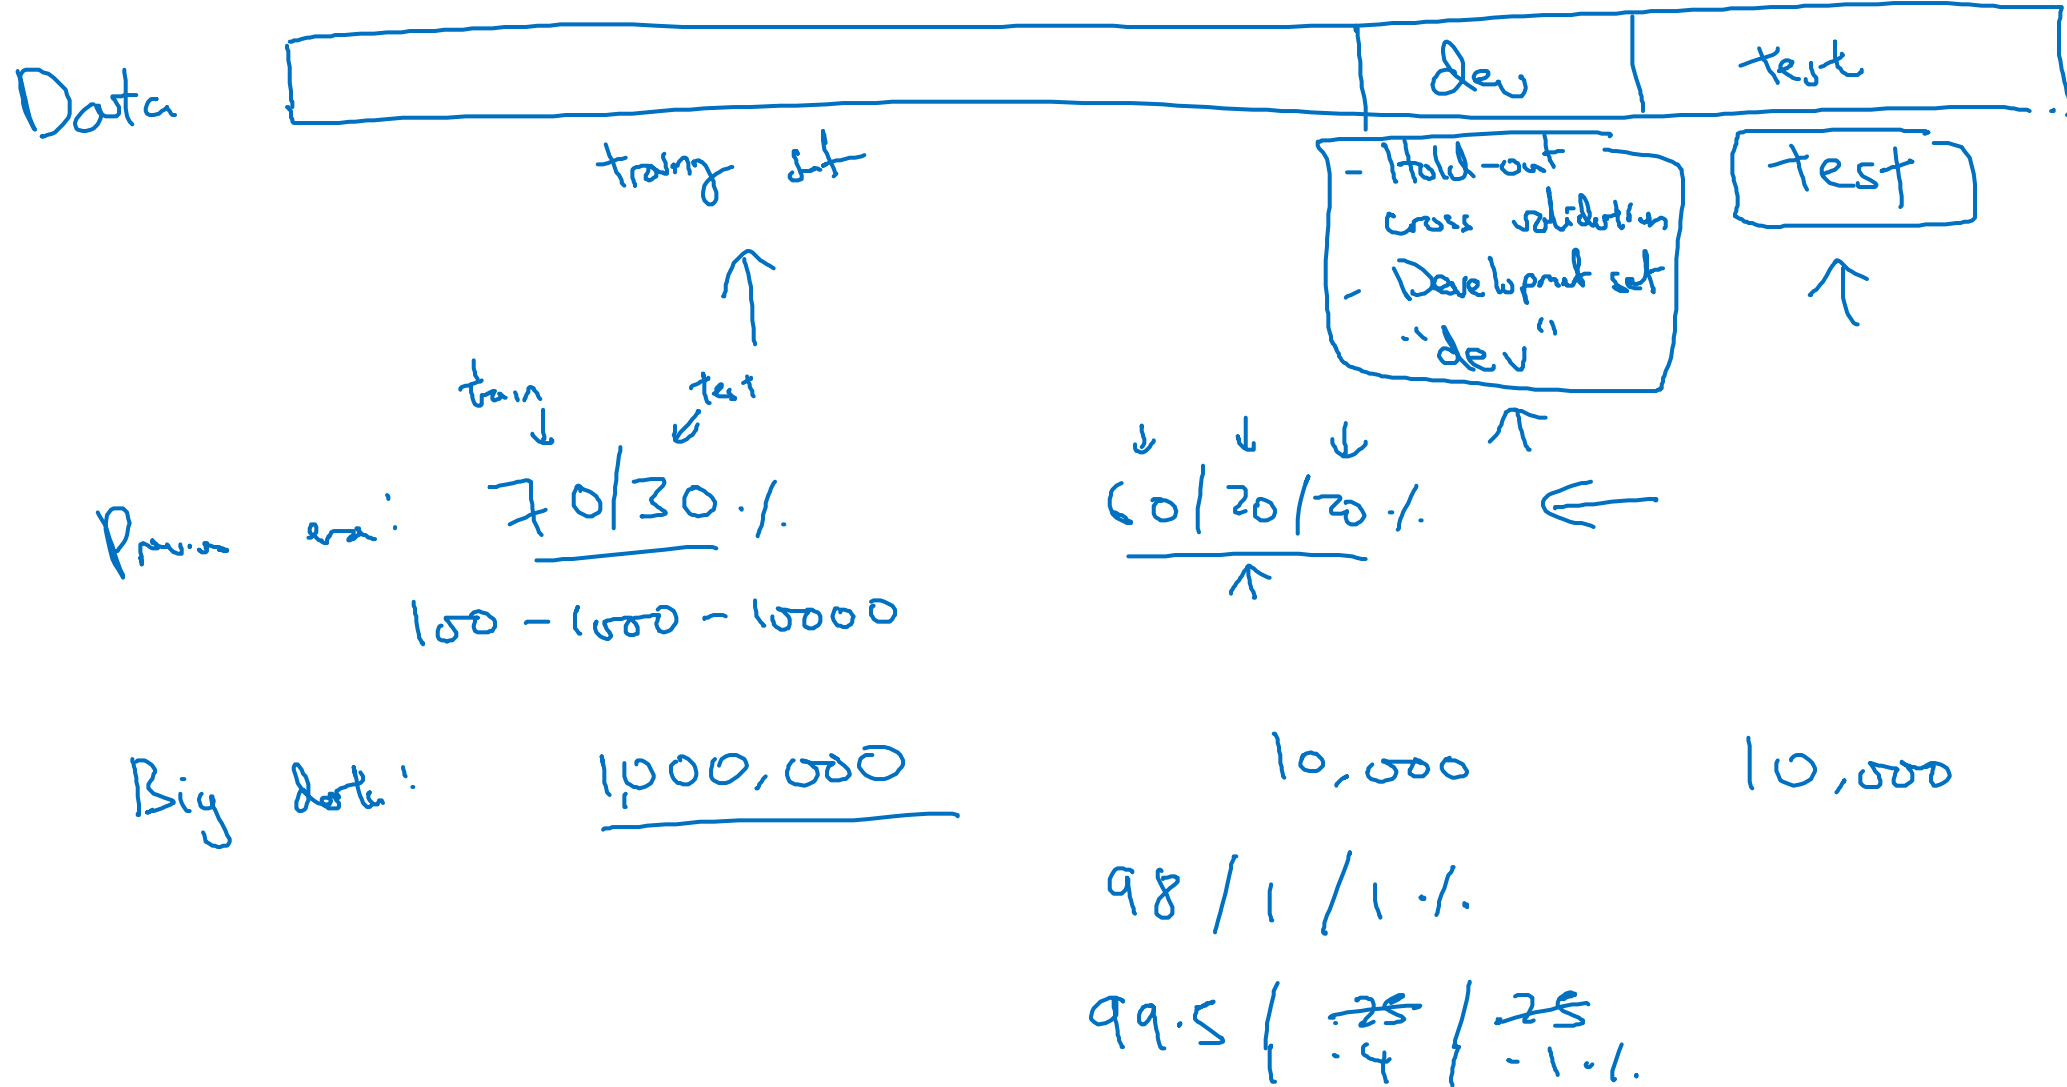 Data
dev
test
training set
- Hold-out
cross validation
- Development set
"dev"
test
train
test
Previous era: 70/30 % 60/20/20 %
100 - 1000 - 10000
Big data: 1,000,000 10,000 10,000
98 / 1 / 1 %
99.5 / .25 / .25
.4 .1 %